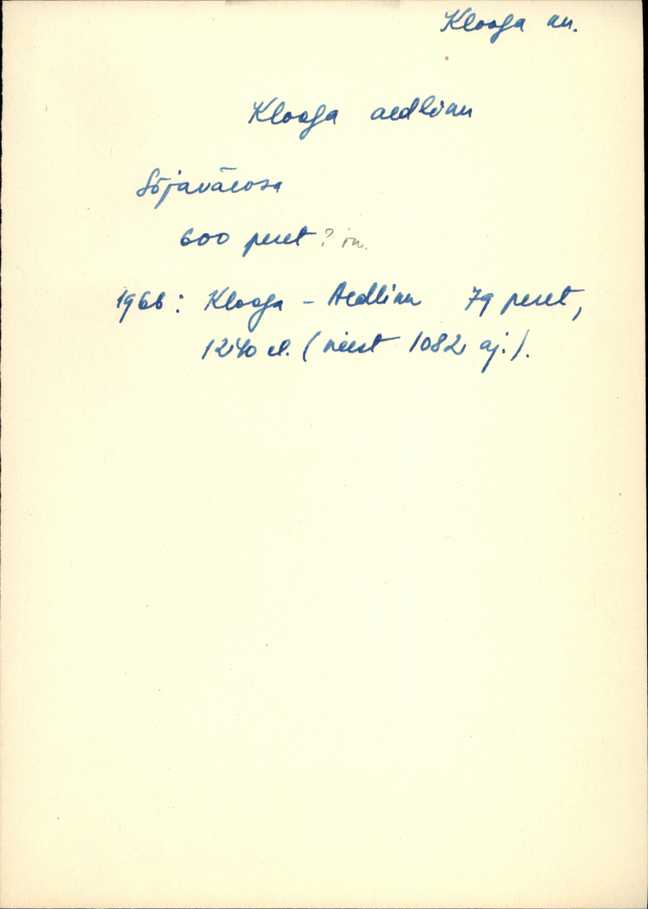 Klooga an.
Klooga aedlinn
Sõjaväeosa
600 peret? in.
1966: Klooga - Aedlinn 79 peret,
1240 el. (neist 1082 aj.).